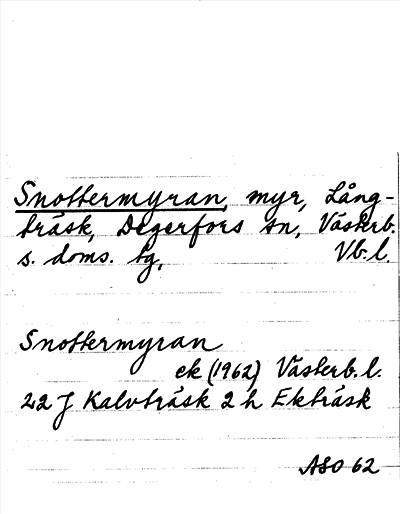 Snottermyran, myr, Lång-
träsk, Degerfors sn, Västerb.
s. doms. tg, Vb. l.
Snottermyran
ek (1962) Västerb. l.
22 J Kalvträsk 2 h Ekträsk
ASO 62